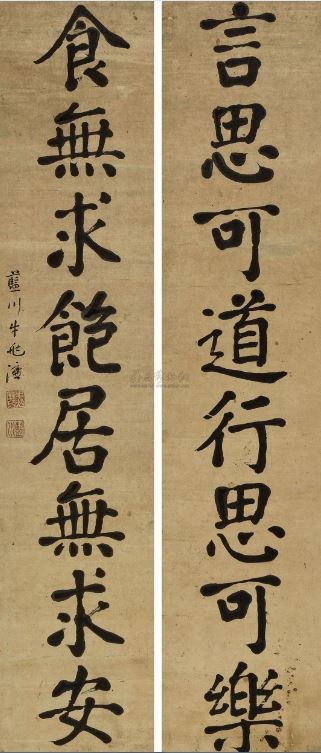 言思可道行思可樂
食無求飽居無求安
藍川牛兆濂